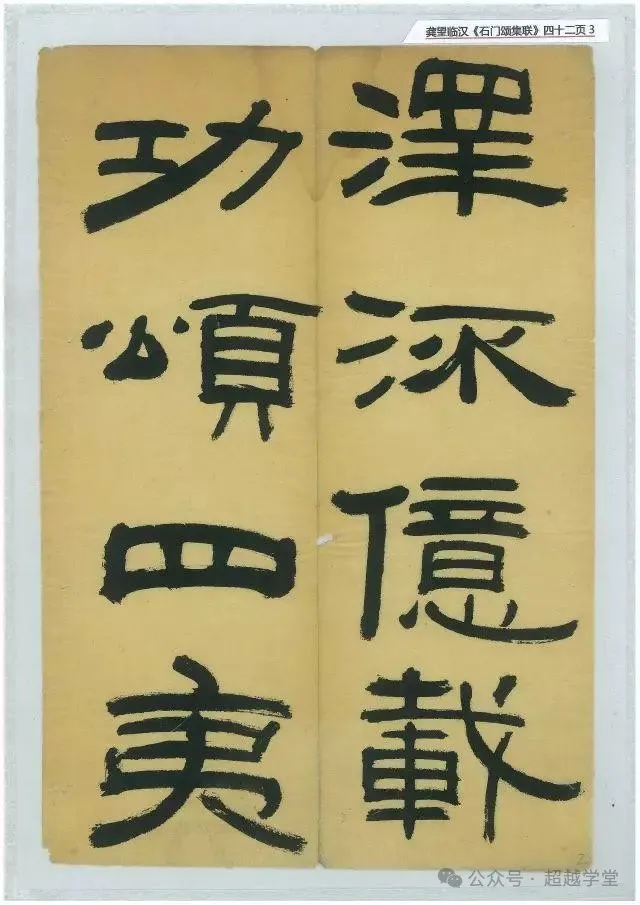 龚望临汉《石门颂集联》四十二页 3
澤流億載
功頌四夷
2
公众号·超越学堂